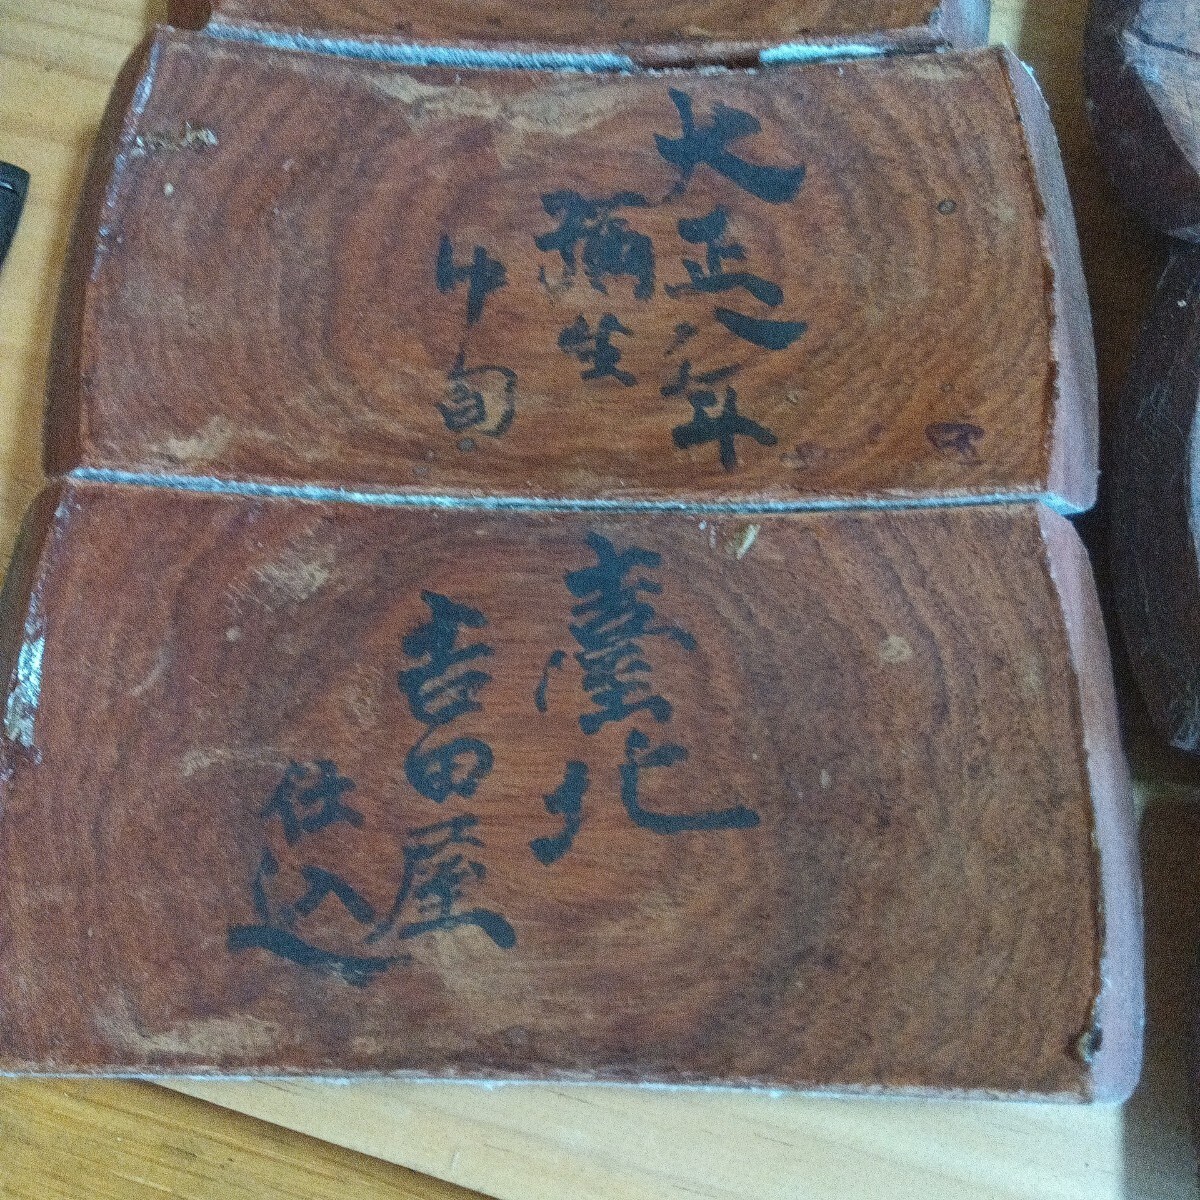 大正八年
彌生
中旬
臺北
吉田屋
仕込